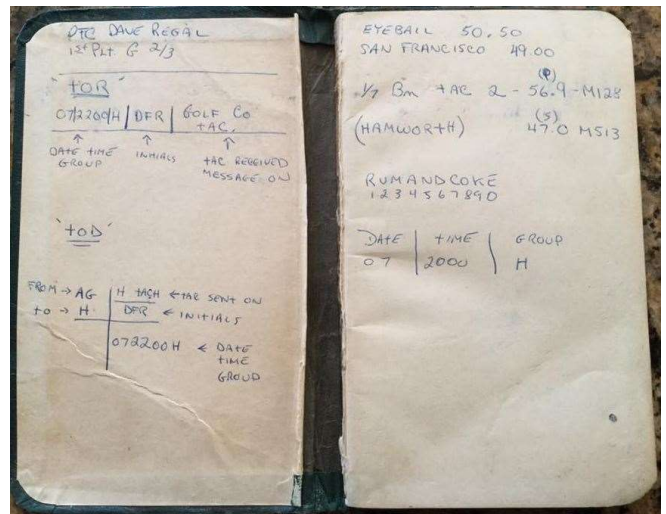 PFC DAVE REGAL
1st PLt G 2/3
"TOR"
07/2200/H | DFR | GOLF CO TAC.
DATE TIME GROUP
INITIALS
TAC RECEIVED MESSAGE ON
"TOD"
FROM → AG | H TACH ← TAC SENT ON
TO → H | DFR ← INITIALS
072200H ← DATE
TIME
GROUP
EYEBALL 50.50
SAN FRANCISCO 49.00
(P)
1/7 Bn TAC 2 - 56.9 - M128
(S)
(HAMWORTH) 47.0 M513
RUMANDCOKE
1234567890
DATE | TIME | GROUP
07 | 2000 | H